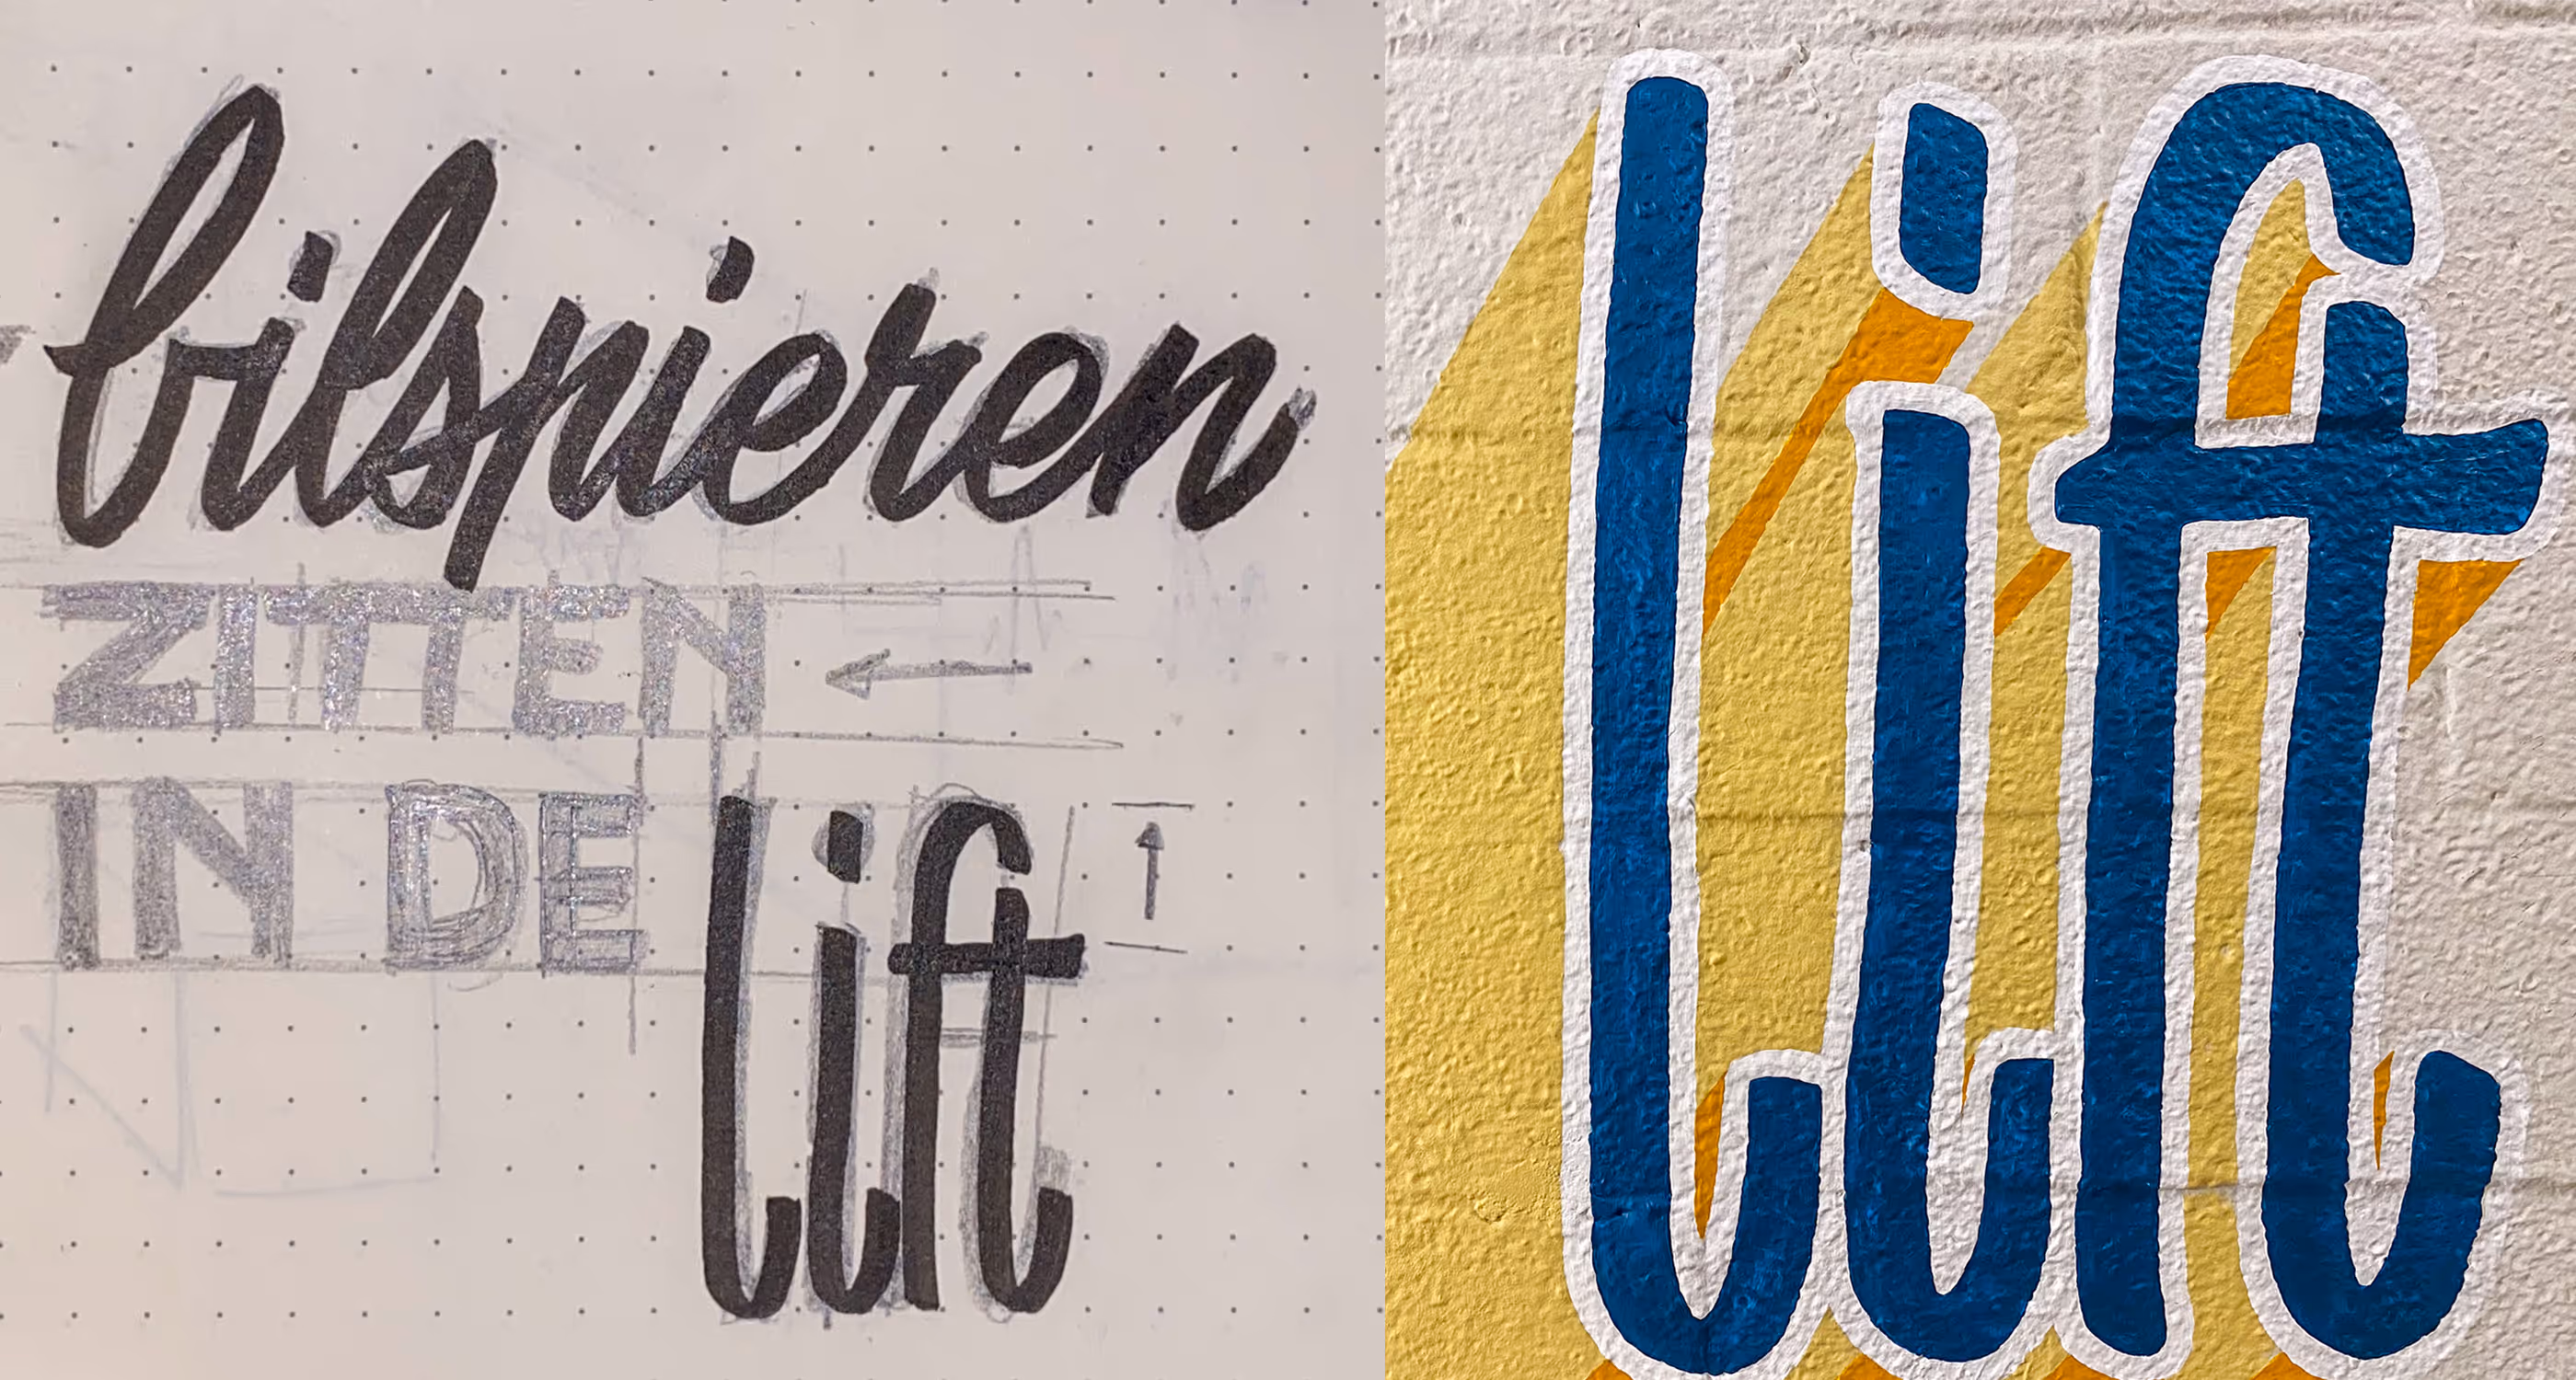 bilspieren
ZITTEN
IN DE lift
lift